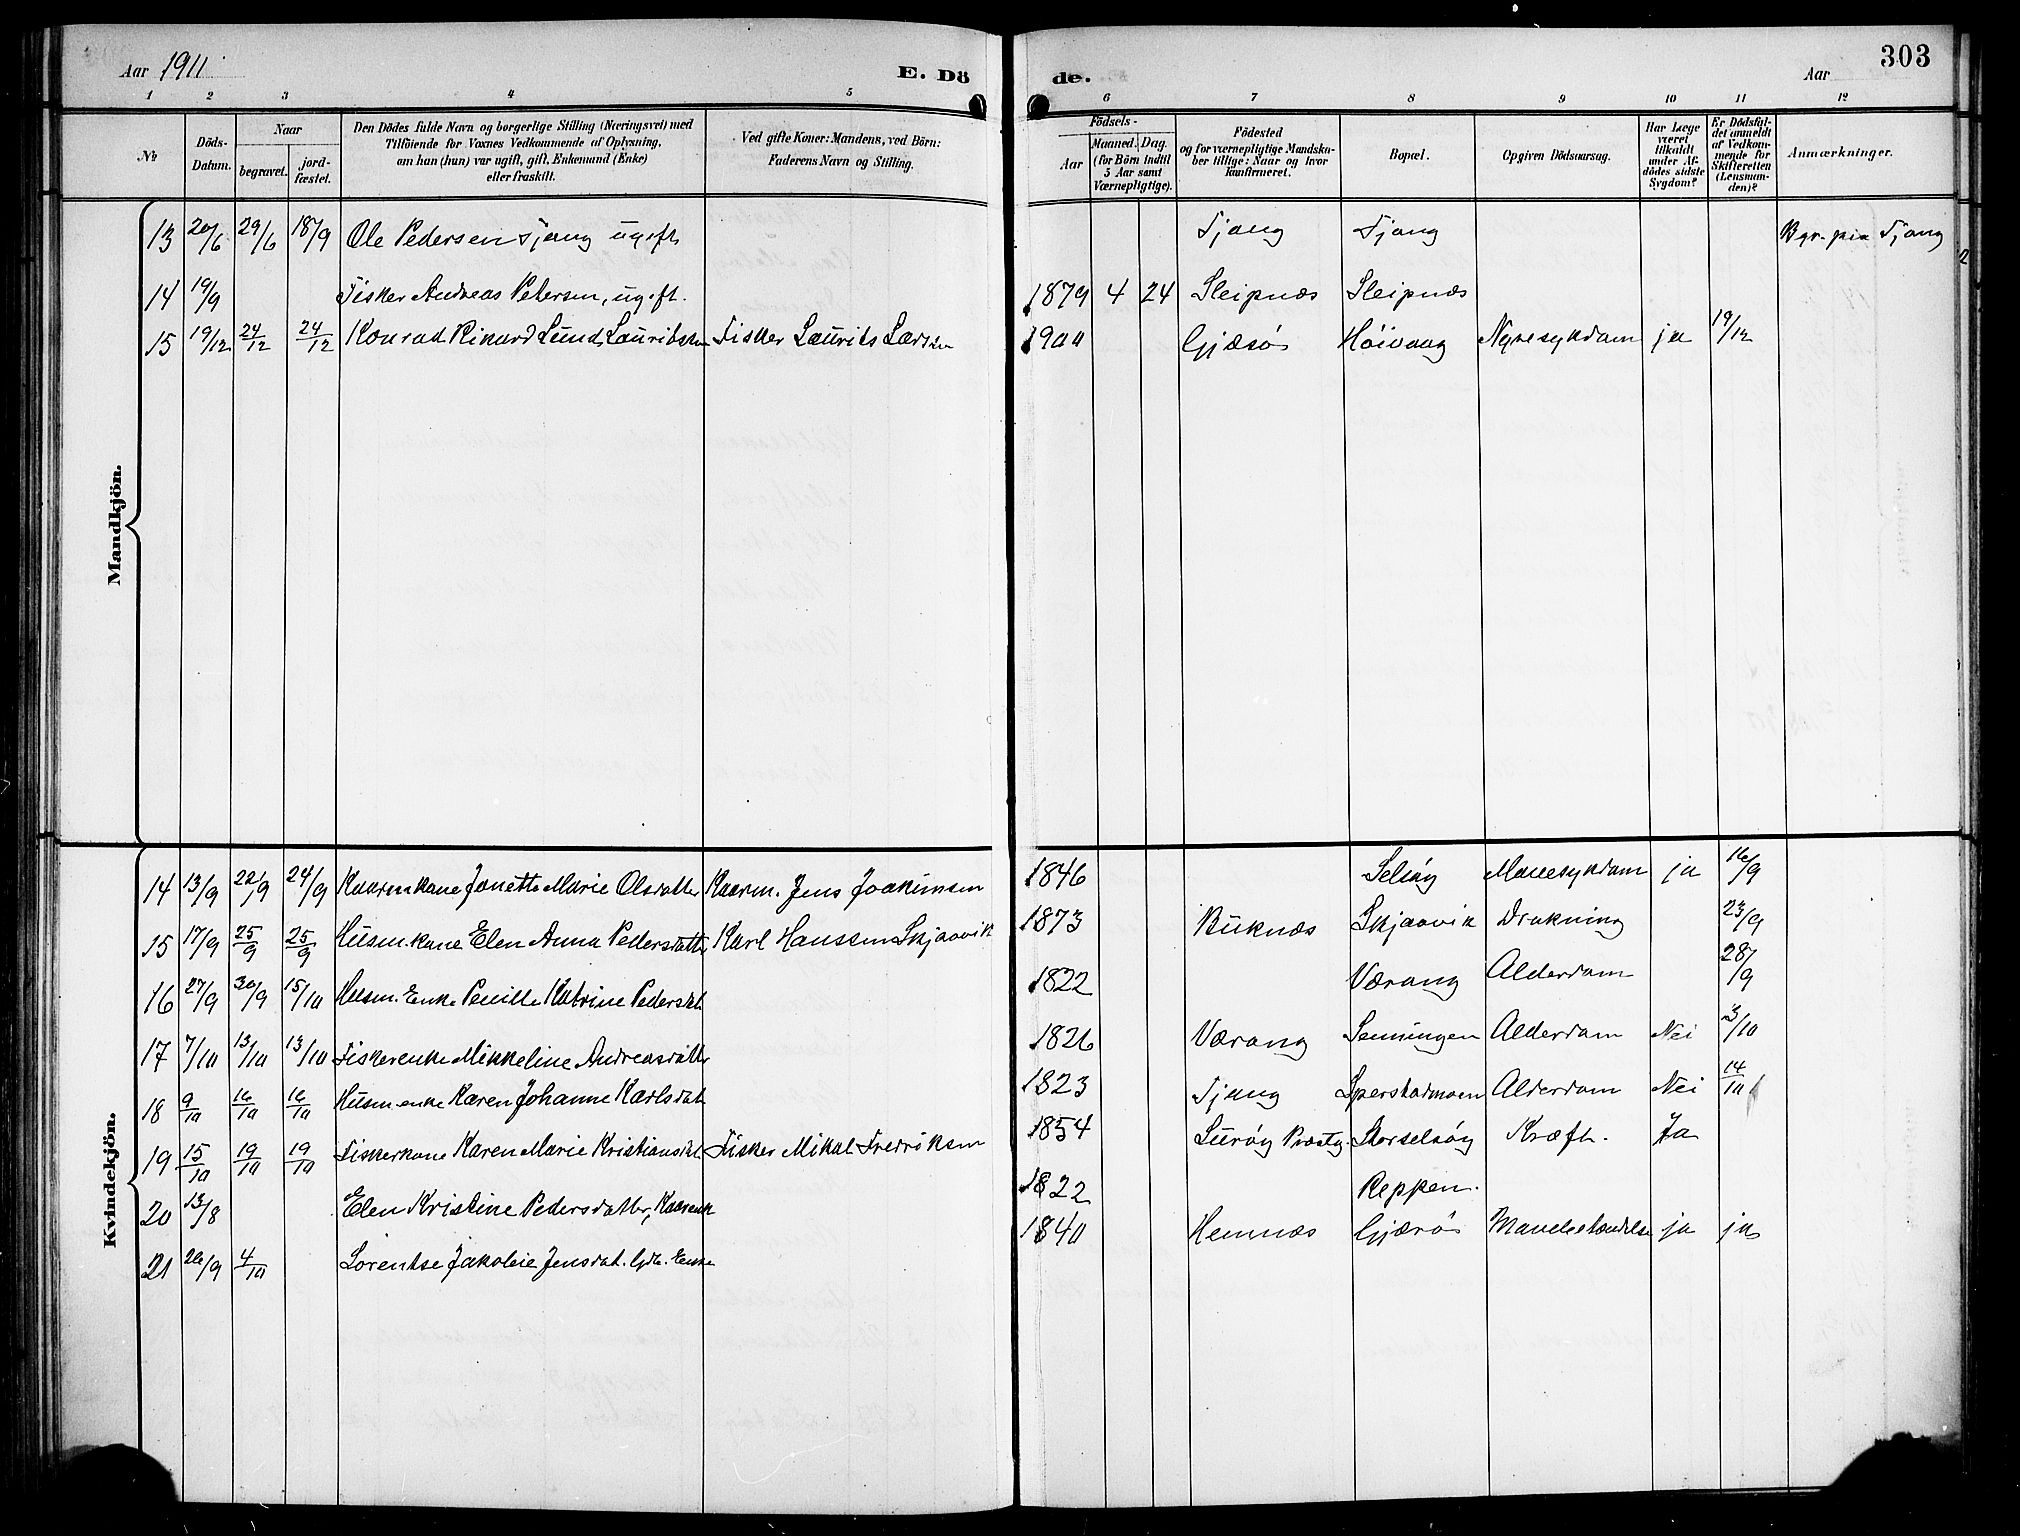 Aar 1911. E. Dö de. Aar 303
1 2 3 4 5 6 7 8 9 10 11 12
№ Döds-Datum. Naar begravet. jord-fæstet. Den Dödes fulde Navn og borgerlige Stilling (Næringsvei) med Tilföiende for Voxnes Vedkommende af Oplysning, om han (hun) var ugift, gift, Enkemand (Enke) eller fraskilt. Ved gifte Koner: Mandens, ved Börn: Faderens Navn og Stilling. Födsels- Aar Maaned. Dag. (for Börn indtil 5 Aar samt Værnepligtige). Födested og for værnepligtige Mandskaber tillige: Naar og hvor konfirmeret. Bopæl. Opgiven Dödsaarsag. Har Læge været tilkaldt under Afdödes sidste Sygdom? Er Dödsfaldet anmeldt af Vedkommende for Skifteretten (Lensmanden)? Anmærkninger.
Mandkjön.
13 20/6 29/6 18/9 Ole Pedersen Tjong ugift Tjong Tjong Bgr. paa Tjong
14 19/9 Fisker Andreas Petersen, ugift. 1879 4 24 Sleipnæs Sleipnæs
15 19/12 24/12 24/12 Konrad Rikard Lund Lauritssen Fisker Laurits Larsen 1900 Gjæsö Höivaag Nyresykdom ja 19/12
Kvindekjön.
14 13/9 22/9 24/9 Kaarmkone Janette Marie Olsdatter Kaarm. Jens Joakimsen 1846 Selsöy Mavesykdom ja 16/9
15 17/9 25/9 25/9 Husm.kone Elen Anna Pedersdatter Karl Hanssen Skjaavik 1873 Buknæs Skjaavik Drukning 23/9
16 27/9 30/9 15/10 Husm. Enke Pernille Katrine Pedersdat 1822 Værang Alderdom 28/9
17 7/10 13/10 13/10 Fiskerenke Mikkeline Andreasdatter 1826 Værang Senningen Alderdom Nei 3/10
18 9/10 16/10 16/10 Husm enke Karen Johanne Karlsdat 1823 Tjong Sperstadmoen Alderdom Nei 14/10
19 15/10 19/10 19/10 Fiskerkone Karen Marie Kristiansdat Fisker Mikal Fredriksen 1854 Luröy Præstg. Storselsöy Kræft. Ja
20 13/8 Elen Kristine Pedersdatter, Kaarenk 1822 Reppen.
21 26/9 4/10 Lorentse Jakobie Jensdat. Gdb. Enke 1840 Hemnæs Gjærö ja ja